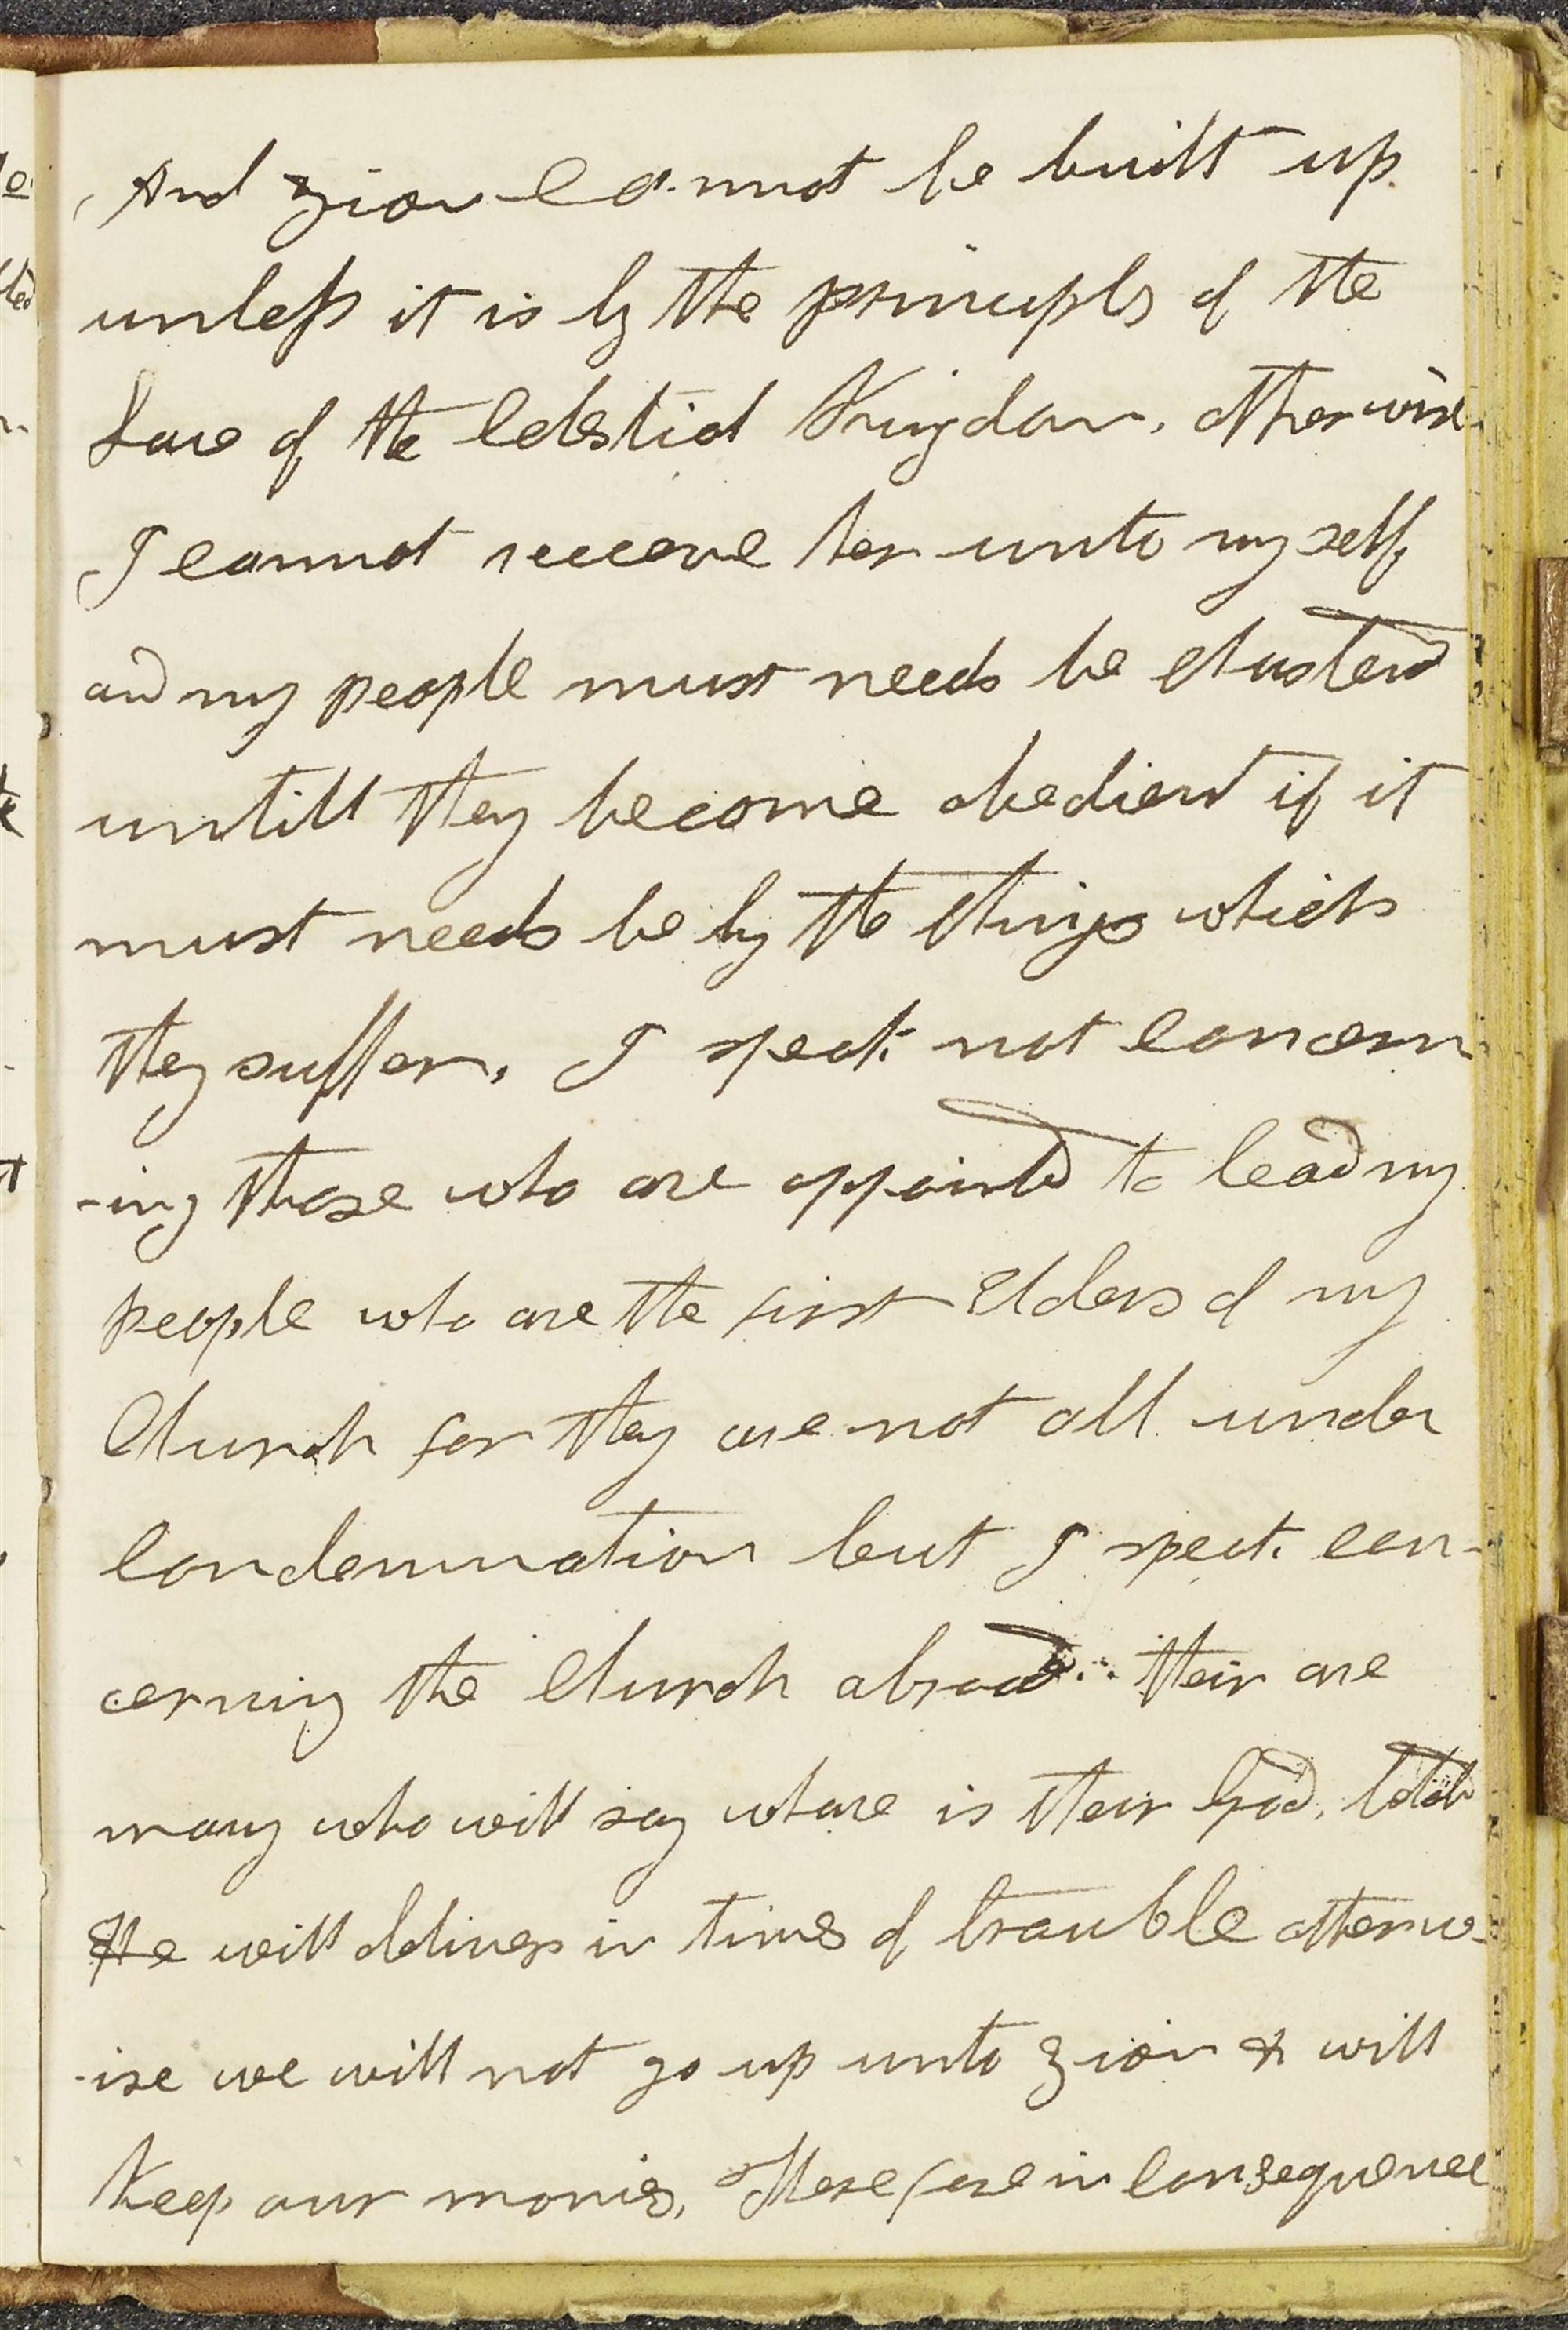 And zion cannot be built up
unless it is by the principls of the
Law of the Celestial Kingdom, otherwise
I cannot receeve her unto my self,
and my people must needs be chastend
untill they become obedient if it
must needs be by the things which
they suffer, I speak not concern
-ing those who are appointed to lead my
people who are the first Elders of my
Church for they are not all under
Condemnation but I speak con-
cerning the Church abroad.. their are
many who will say whare is their God,
He will deliver in times of trouble otherw-
-ise we will not go up unto zion & will
Keep our monies, Therefore in consequence